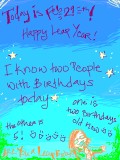 Today is Feb 29th!
Happy Leap Year!
I know two People
with Birthdays
today
one is
two birthdays
old
the other is
5!